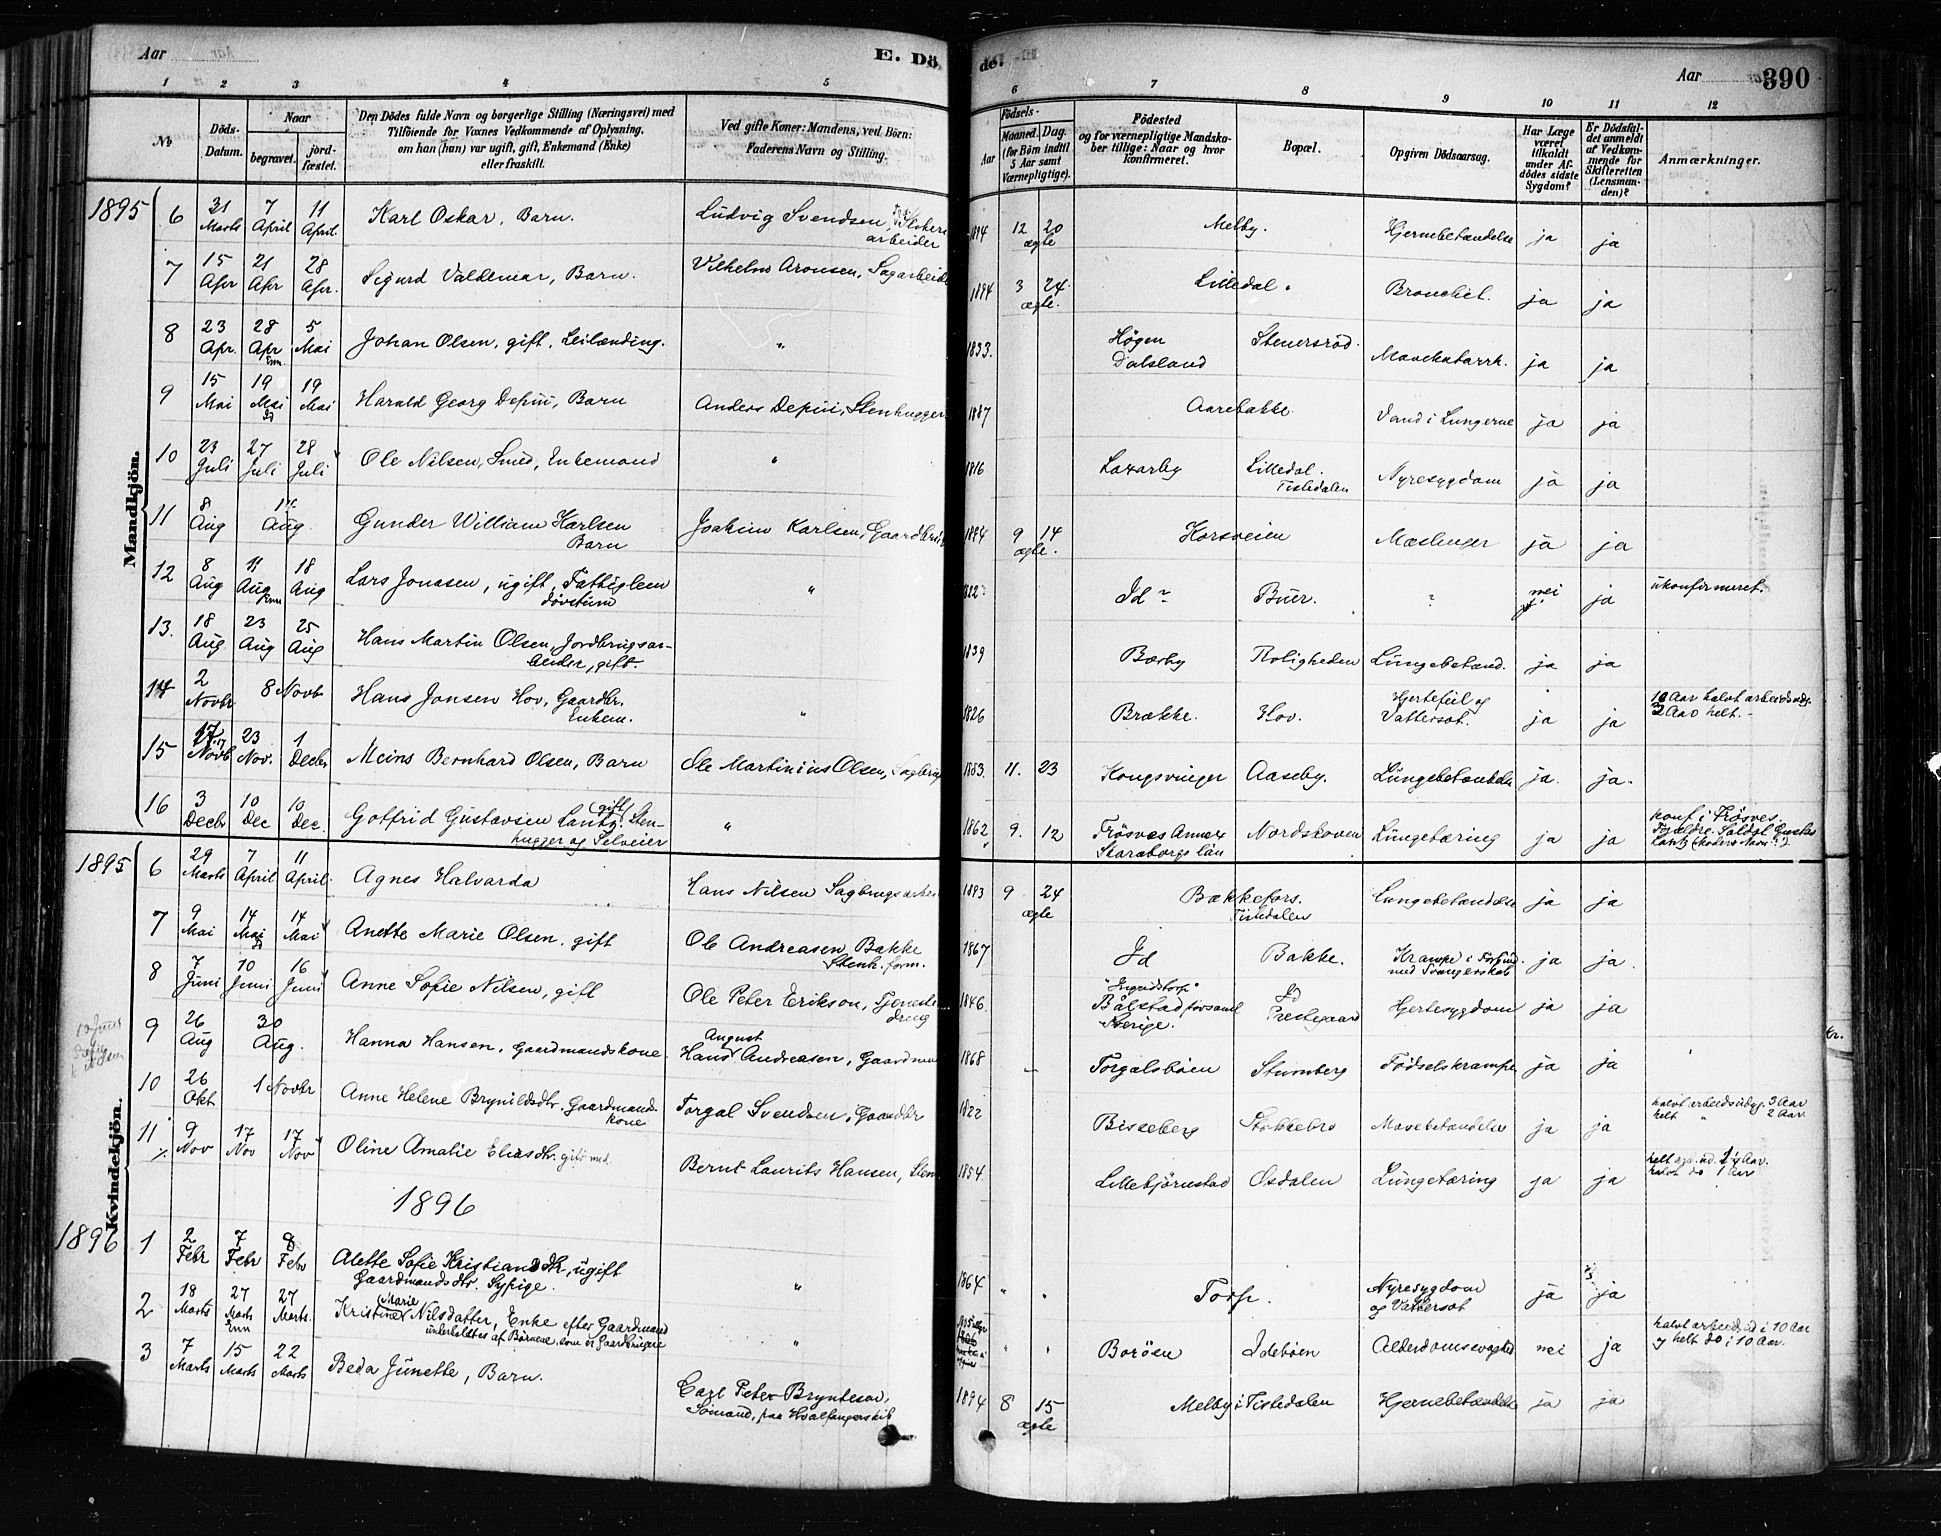 Aar
E. Dö
de.
Aar
390
1 2 3 4 5
6 7 8 9 10 11 12
No
Döds-Datum.
Naar
begravet.
jord-fæstet.
Den Dödes fulde Navn og borgerlige Stilling (Næringsvei) med
Tilföiende for Voxnes Vedkommende af Oplysning,
om han (hun) var ugift, gift, Enkemand (Enke)
eller fraskilt.
Ved gifte Koner: Mandens, ved Börn:
Faderens Navn og Stilling.
Födsels-
Aar
Maaned. Dag.
(for Börn indtil
5 Aar samt
Værnepligtige).
Födested
og for værnepligtige Mandska-
ber tillige: Naar og hvor
konfirmeret.
Bopæl.
Opgiven Dödsaarsag.
Har Læge
været
tilkaldt
under Af-
dödes sidste
Sygdom?
Er Dödsfal-
det anmeldt
af Vedkom-
mende for
Skifteretten
(Lensman-
den)?
Anmærkninger.
Mandkjön.
1895 6 31 Marts 7 April 11 April. Karl Oskar, Barn. Ludvig Svendsen, arbeider 1894 12 20 ægte Melby. Hjernebetændelse ja ja
7 15 Apr 21 Apr 28 Apr. Sigurd Valdemar, Barn. Vilhelm Aronsen, Sagarbeide 1894 3 24 ægte. Lilledal. Bronchit. ja ja
8 23 Apr. 28 Apr 5 Mai Johan Olsen, gift, Leilænding. " 1833. Högen Dalsland Stenersröd. Mavekatarrh. ja ja
9 15 Mai 19 Mai 19 Mai Harald Georg Depui, Barn Anders Depui, Stenhugger 1887 Aarebakke. Vand i Lungerne ja ja
10 23 Juli 27 Juli 28 Juli Ole Nilsen, Smed, Enkemand " 1816 Laxarby Lilledal. Tistedalen Nyresygdom ja ja
11 8 Aug 14 Aug. Gunder William Karlsen Barn Joakim Karlsen, Gaardbru 1894 9 14 ægte. Korsveien Mæslinger ja ja
12 8 Aug 11 Aug 18 Aug Lars Jonasen, ugift, Fattiglem dövstum " 1822? Id ? Buer. ? nei ja ukonfirmeret.
13. 18 Aug 23 Aug 25 Aug Hans Martin Olsen, Jordbrugsar-
beider, gift. 1839 Bærby Roligheden Lungebetænd. ja ja
14 2 Novbr 8 Novbr Hans Jonsen Hov, Gaardbr. Enkem. " 1826 Brække. Hov. Hjertefeil og Vattersot. ja ja 10 Aar halvt arbeidsudyg. 2 Aar helt. –
15 17 Novb 23 Nov. 1 Decbr Meins Bernhard Olsen, Barn Ole Martinius Olsen, Sagbrug 1883. 11. 23 Kongsvinger Aaseby. Lungebetændelse ja. ja.
16 3 Decbr 10 Dec 10 Dec. Gotfrid Gustavsen Lantz (gift) Sten-
hugger og Selveier " 1862 9. 12 Frösves Annex Skaraborgs län Nordskoven Lungetæring ja ja konf i Frösves. Forældre: Soldat Gustav Lantz (Moders Navn ?)
Kvindekjön.
1895 6 29 Marts 7 April 11 April. Agnes Halvarda Hans Nilsen Sagbrugsarbei 1893 9 24 ægte Bækkefors. Tistedalen Lungebetændelse ja ja
7 9 Mai 14 Mai 14 Mai Anette Marie Olsen, gift Ole Andreasen Bakke Stenh. form. 1867 Id Bakke. Krampe i Forbind. med Svangerskab ja ja.
8 7 Juni 10 Juni 16 Juni Anne Sofie Nilsen, gift Ole Peter Erikson, Tjeneste-
dreng 1846. "Ingridstorp" Bålstad forsaml Sverige. Id Prestegaard Hjertesygdom ja ja
9 26 Aug 30 Aug. Hanna Hansen, Gaardmandskone. Hans August Andreasen, Gaardman 1868 – Torgalsböen Stumberg Födselskrampe ja ja
10 26 Okt 1 Novbr Anne Helene Brynildsdtr. Gaardmands-
kone Torgal Svendsen, Gaardbr 1822 Bisseberg Stokkebro Mavebetændelse ja ja halvt arbeidsudyg. 3 Aar helt " 2 Aar.
11 9 Nov 17 Nov 17 Nov Oline Amalie Eliasdtr. gift med Bernt Laurits Hansen, Sten 1854. Lillebjörnstad Ösdalen Lungetæring ja ja helt arb. ud. 1/4 Aar. halvt do 1 Aar
1896
1896 1 2 Febr 7 Febr 8 Febr Alette Sofie Kristiansdtr, ugift Gaardmandsdtr. Sypige. " 1864 " " Torp. Nyresygdom og Vattersot ja ja
2 18 Marts 27 Marts 27 Marts. Kristine Marie Nilsdatter, Enke efter Gaardmand underholdtes af Börnene, som er Gaardbrugere " " " Boröen Ideböen Alderdomssvaghed nei ja halvt arbeidsud i 10 Aar og helt do i 10 Aar.
3 7 Marts 15 Marts 22 Marts Beda Junette, Barn. Carl Peter Bryntesen, Sömand, paa Hvalfangerskib 1894 8 15 ægte Melby i Tistedalen Hjernebetændelse ja ja